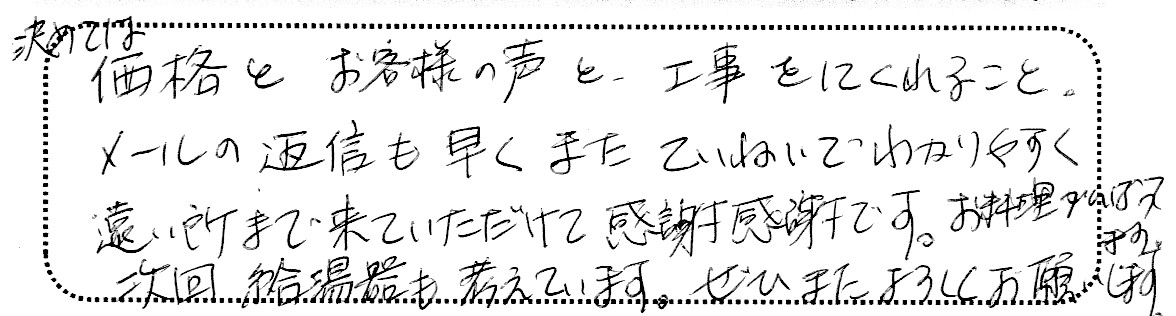 決めては
価格と お客様の声と、工事をにくれること。
メールの返信も早くまたていねいでわかりやすく
遠い所まで来ていただけて感謝感謝です。お料理がんばってます。
次回 給湯器も考えています。ぜひまたよろしくお願いします。